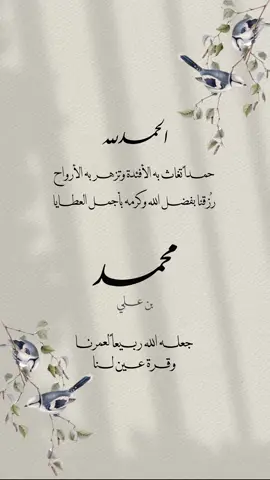 الحمدلله
حمداً تغاث به الأفئدة وتزهر به الأرواح
رُزقنا بفضل الله وكرمه بأجمل العطايا
محمد
بن علي
جعله الله ربيعاً لعمرنا
وقرة عين لنا